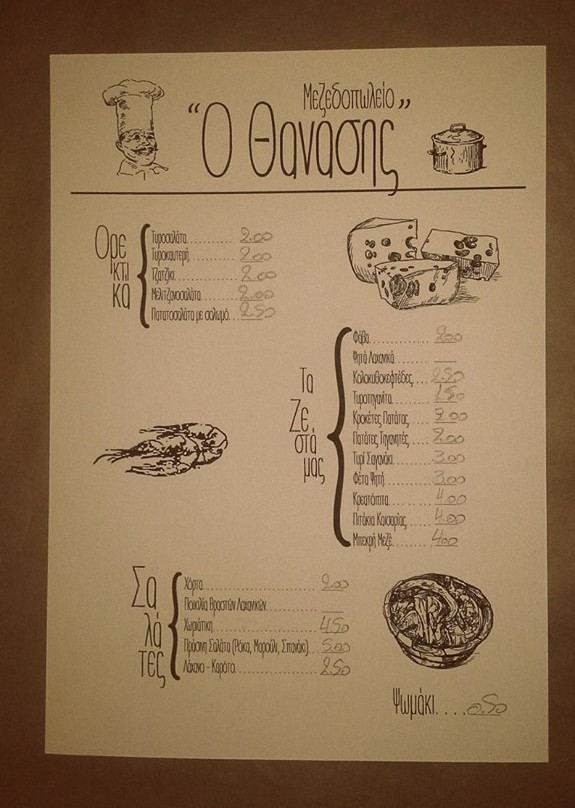 Μεζεδοπωλείο
“Ο Θανάσης”
Ορεκτικά
Τυροσαλάτα........... 2.00
Τυροκαυτερή.......... 2.00
Τζατζίκι............. 2.00
Μελιτζανοσαλάτα...... 2.00
Πατατοσαλάτα με σολωμό... 2.50
Τα Ζεστά μας
Φάβα............. 2.00
Ψητά Λαχανικά ___
Κολοκυθοκεφτέδες.... 2.50
Τυροπιγανίτα........ 1.50
Κροκέτες Πατάτας.... 2.00
Πατάτες Τηγανητές... 2.00
Τυρί Σαγανάκι....... 3.00
Φέτα Ψητή........... 3.00
Κρεατόπιτα.......... 4.00
Πιτάκια Καισαρίας... 4.00
Μπεκρή Μεζέ......... 4.00
Σαλάτες
Χόρτα............... 2.00
Ποικιλία Βραστών Λαχανικών.... ___
Χωριάτικη........... 4.50
Πράσινη Σαλάτα (Ρόκα, Μαρούλι, Σπανάκι)... 5.00
Λάχανο - Καρότο..... 2.50
Ψωμάκι.... 0.50